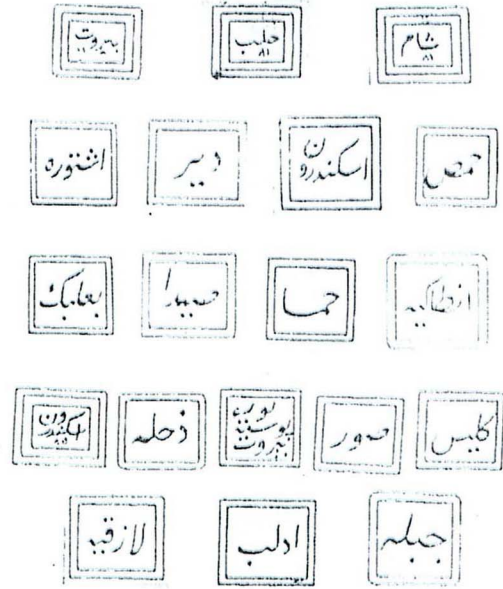 شام ٨١ حلب ٨١ بيروت
حمص اسكندرون دير اشتوره
انطاكيه حما صيدا بعلبك
كليس صور بيروت ذحله اسكندرون
جبله ادلب لازقيه